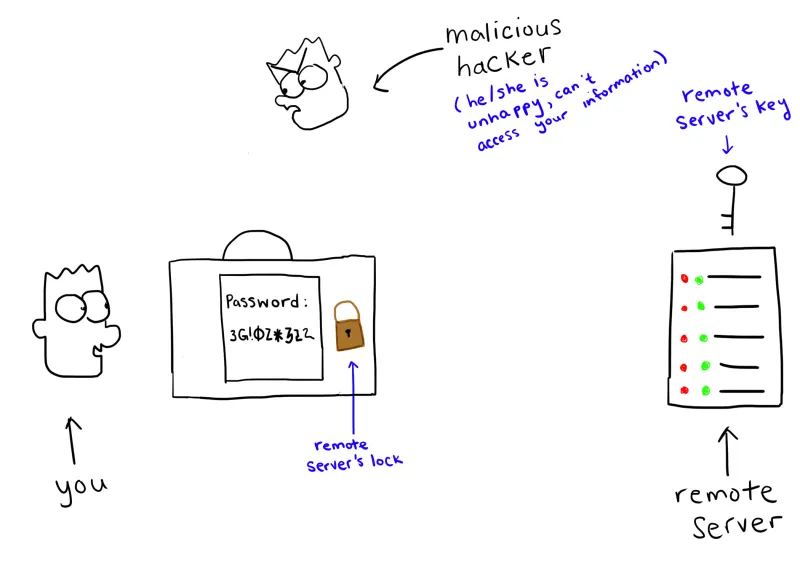 malicious
hacker
(he/she is
unhappy, can't
access your information)
remote
server's key
Password:
remote
server's lock
you
remote
server